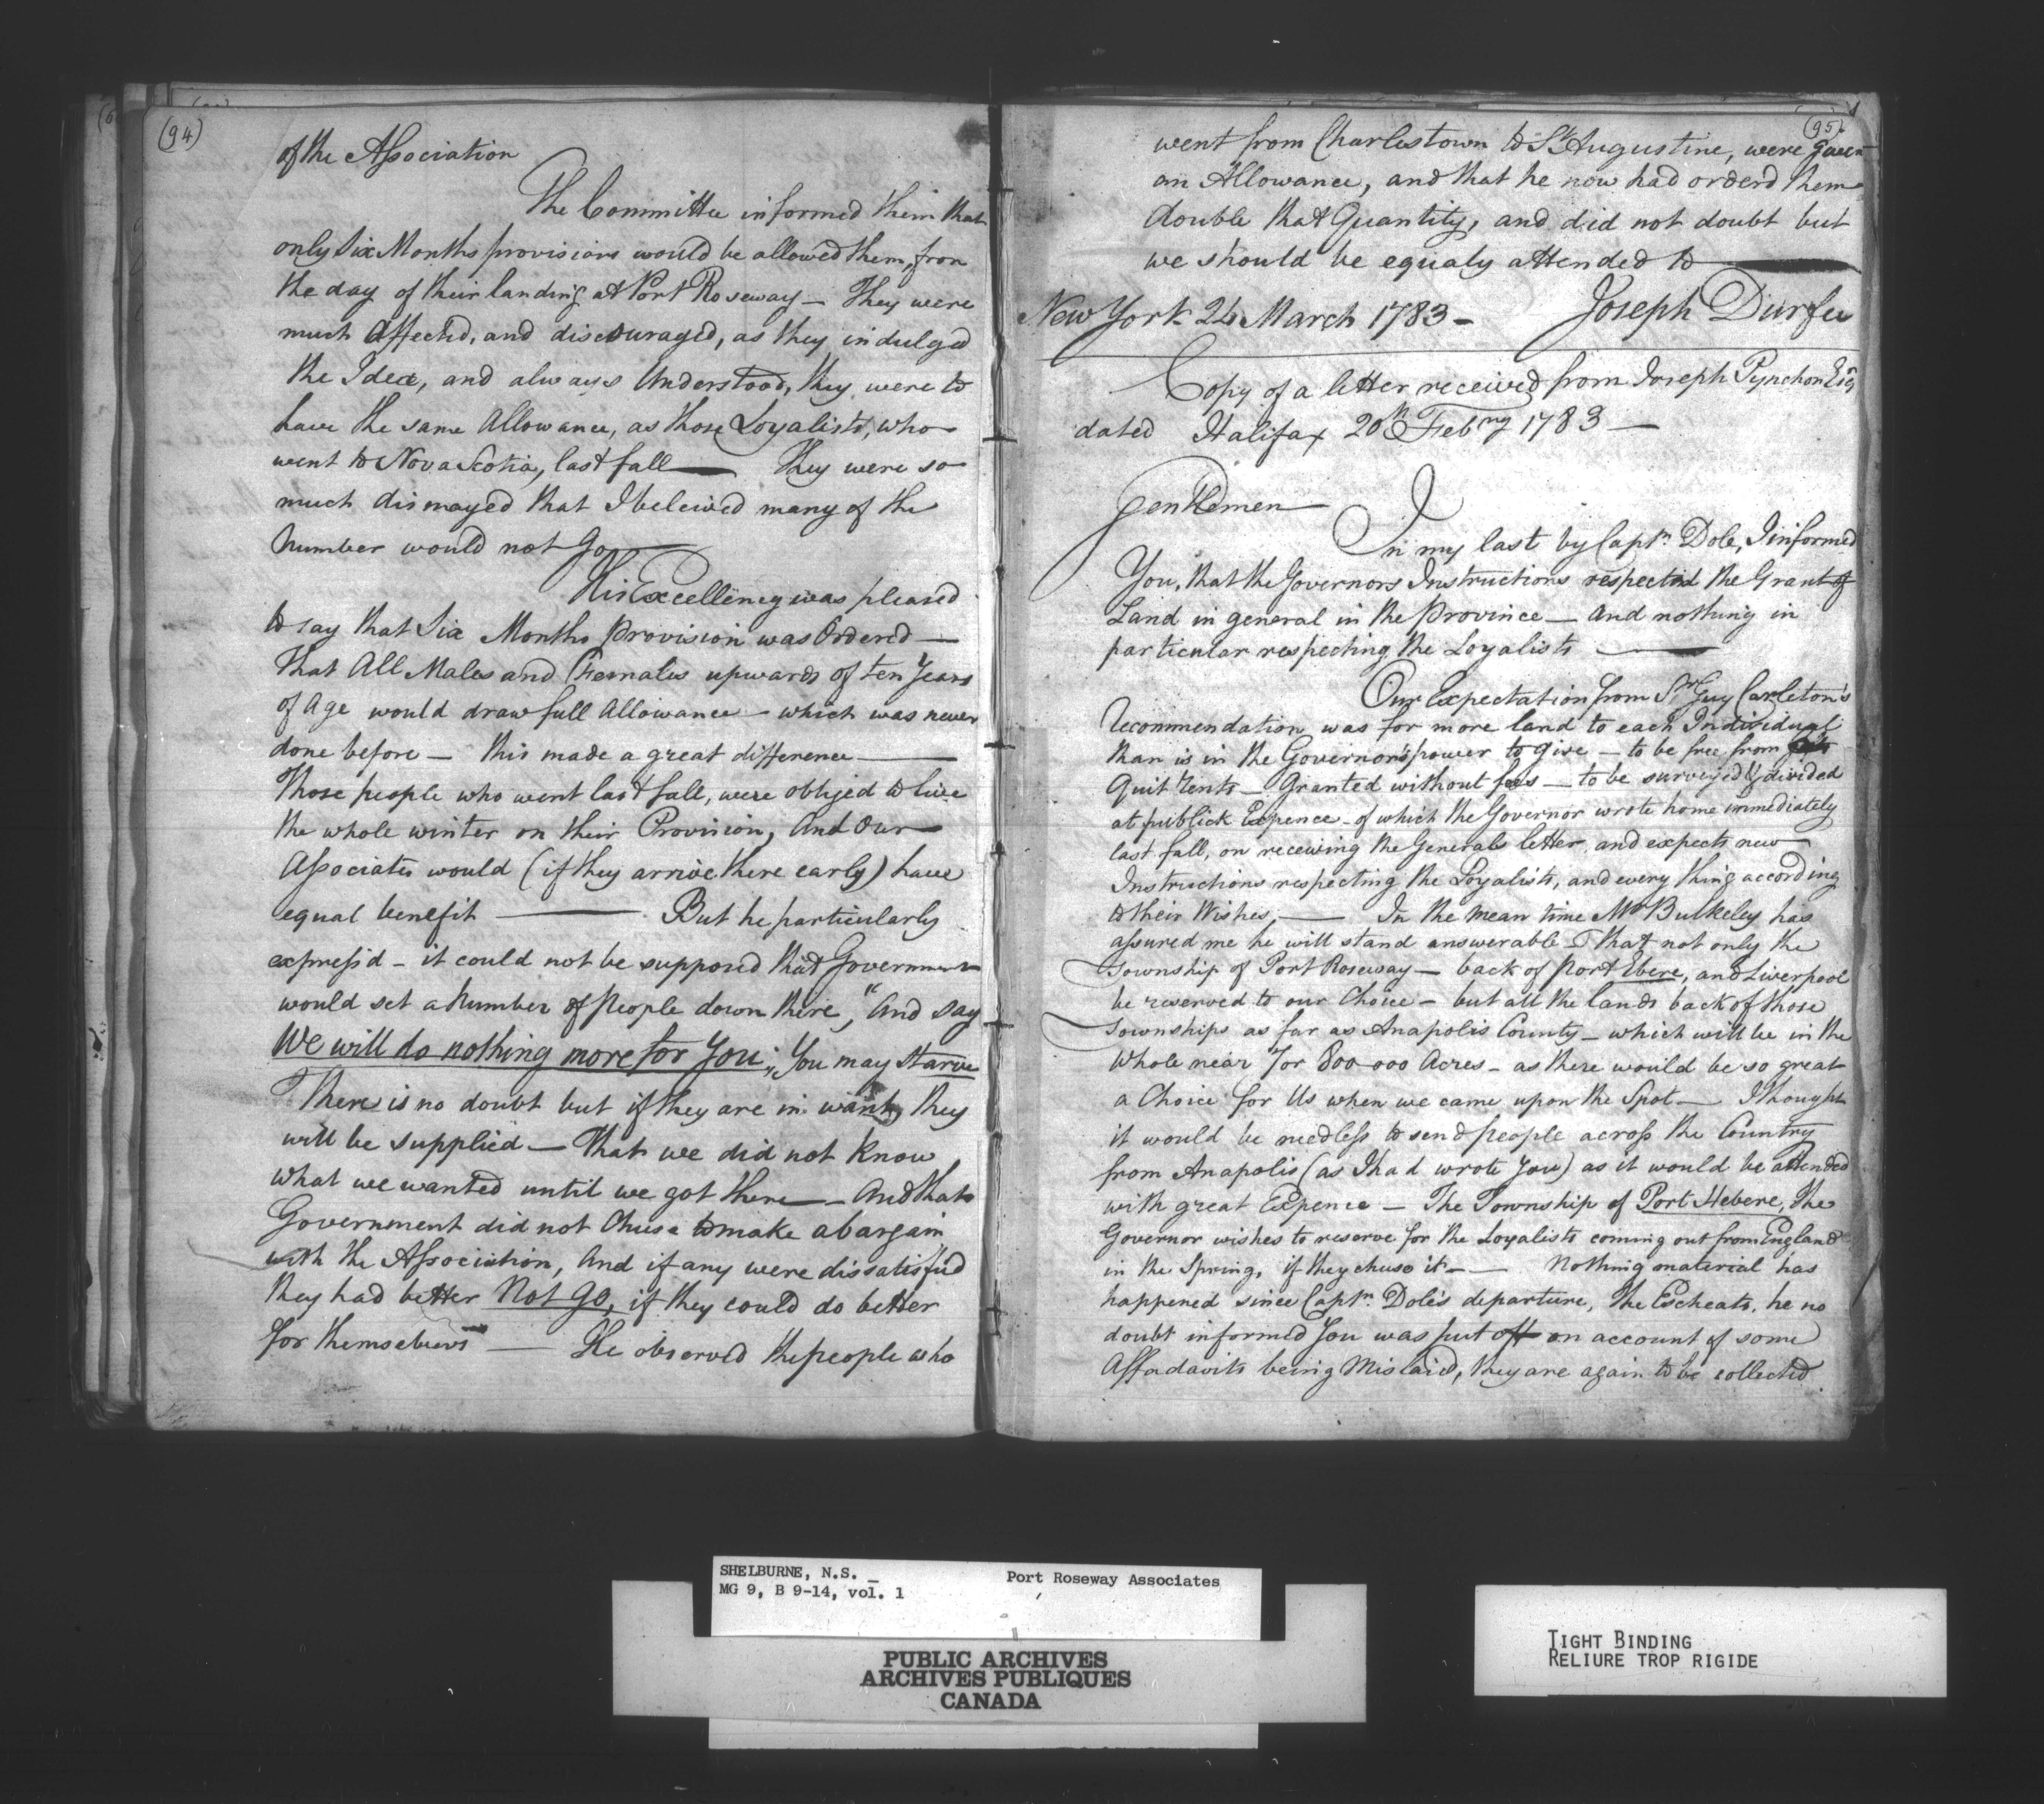 (94)
of the Association
The Committee informed them that
only Six Months provisions would be allowed them, from
the day of their landing at Port Roseway — They were
much Affected, and discouraged, as they indulged
the Idea, and always Understood, they were to
have the same Allowance, as those Loyalists, who
went to Nova Scotia, last fall — They were so
much dismayed that I beleived many of the
Number would not go —
His Excellency was pleased
to say that Six Months Provision was Ordered —
That All Males and Females upwards of ten Years
of Age would draw full Allowance — which was never
done before — this made a great difference —
Those people who went last fall, were obliged to live
the whole winter on their Provision, And Our
Associates would (if they arrive there early) have
equal benefit — But he particularly
express'd — it could not be supposed that Government
would set a Number of People down there, "And say
We will do nothing more for You", You may starve
There is no doubt but if they are in want, they
will be supplied — That we did not know
what we wanted until we got there — And that
Government did not Chuse to make a bargain
with the Association, And if any were dissatisfied
they had better Not Go, if they could do better
for themselves — He observed the people who
(95)
went from Charlestown to St Augustine, were given
an Allowance, and that he now had orderd them
double that Quantity, and did not doubt but
we should be equaly attended to —
New York 24 March 1783 — Joseph Durfee
Copy of a letter received from Joseph Pynchon Esqr
dated Halifax 20th Febry 1783 —
Gentlemen
In my last by Captn Dole, I informed
You, that the Governors Instructions respected the Grant of
Land in general in the Province — And nothing in
particular respecting the Loyalists —
Our Expectation from Sr Guy Carleton's
recommendation was for more land to each Individual
than is in the Governor's power to give — to be free from
Quit rents — Granted without fees — to be surveyed & divided
at publick Expence — of which the Governor wrote home immediately
last fall, on receiving the Generals letter, and expects new
Instructions respecting the Loyalists, and every thing according
to their Wishes, — In the mean time Mr Bulkeley has
assured me he will stand answerable that not only the
Township of Port Roseway — back of Port Ebere, and Liverpool
be reserved to our Choice — but all the lands back of those
Townships as far as Anapolis County — which will be in the
Whole near 7 or 800,000 Acres — as there would be so great
a Choice for Us when we came upon the Spot — I thought
it would be needless to send people across the Country
from Anapolis (as I had wrote you) as it would be attended
with great Expence — The Township of Port Hebere, the
Governor wishes to reserve for the Loyalists coming out from England
in the Spring, if they chuse it — — Nothing material has
happened since Captn. Dole's departure, the Escheats, he no
doubt informed You was put off on account of some
Affadavits being Mislaid, they are again to be collected
SHELBURNE, N.S. — Port Roseway Associates
MG 9, B 9-14, vol. 1
PUBLIC ARCHIVES
ARCHIVES PUBLIQUES
CANADA
TIGHT BINDING
RELIURE TROP RIGIDE